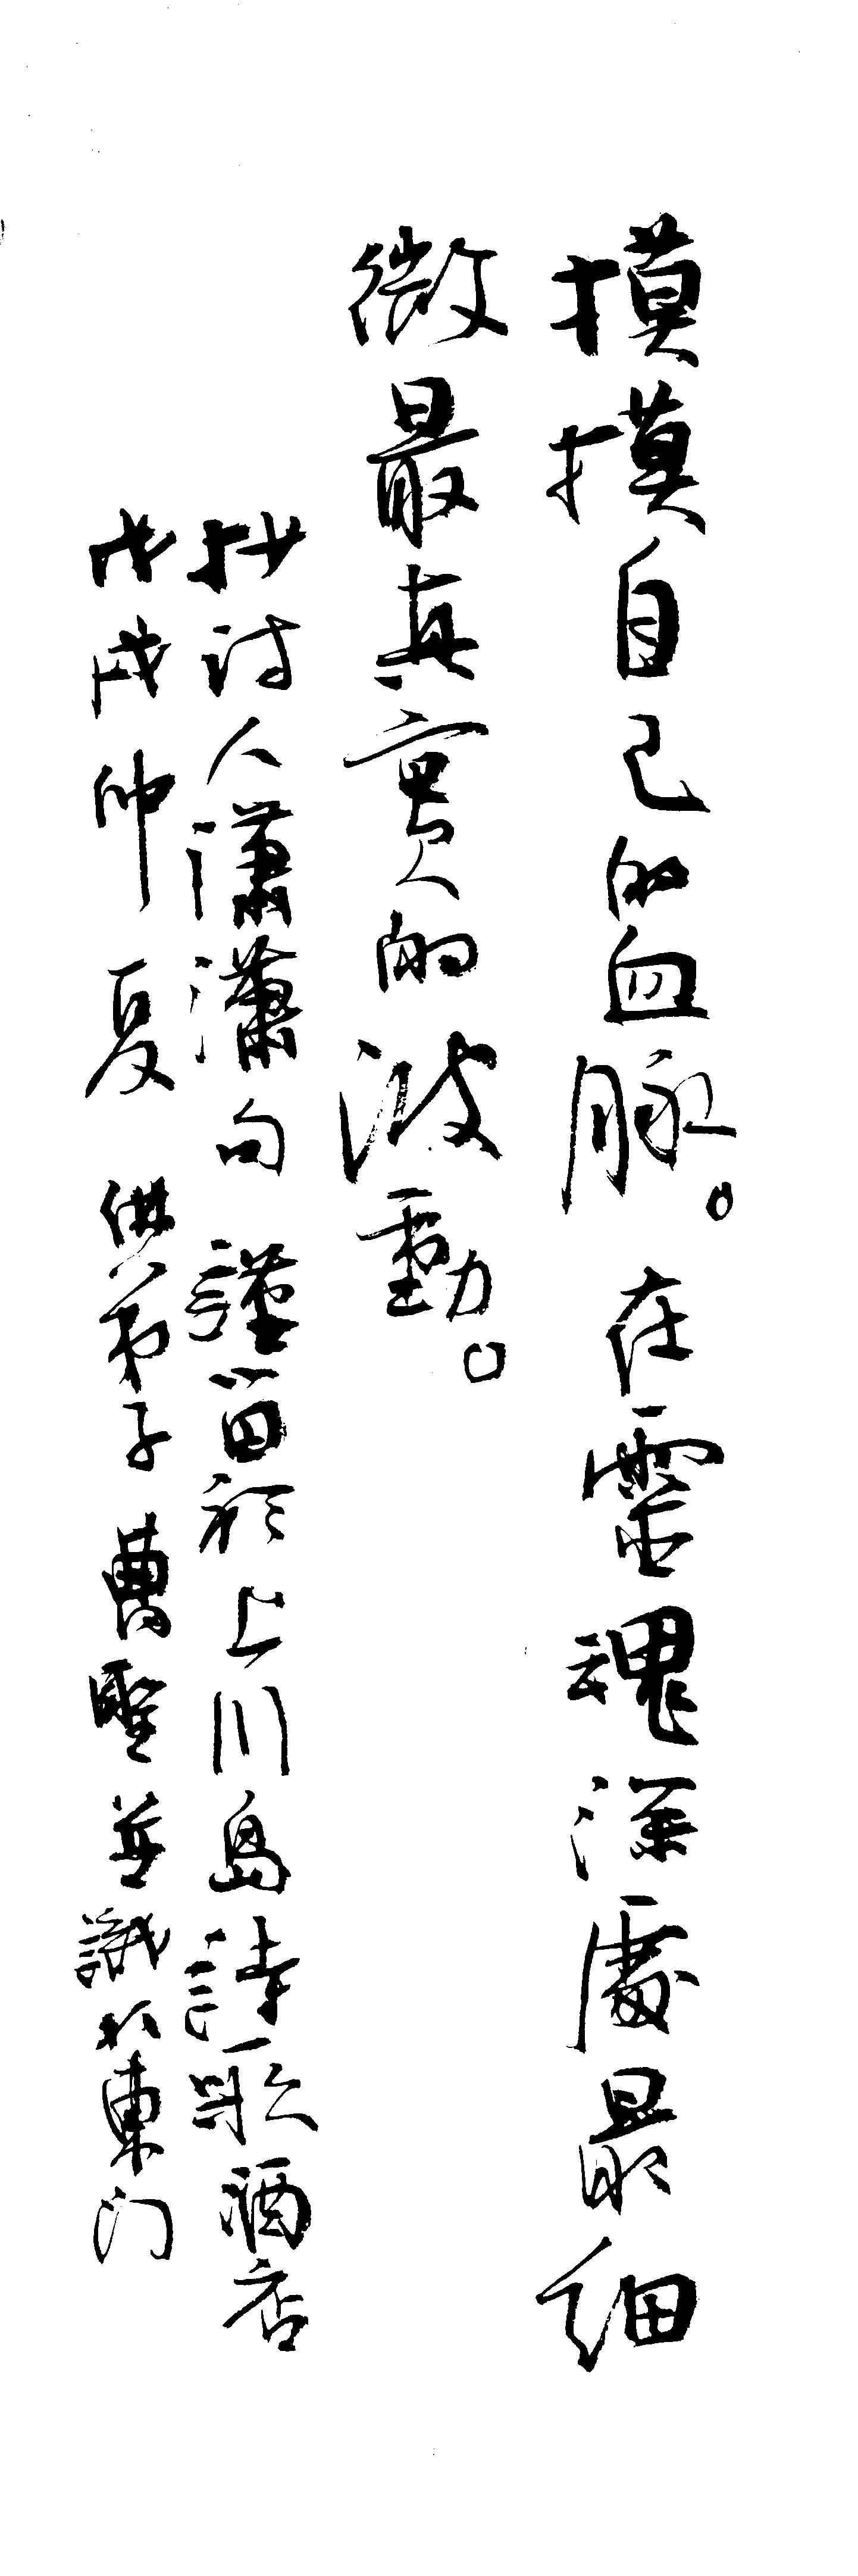 摸摸自己的血脉。在靈魂深處最細
微最真實的波動。
抄诗人潇瀟句 謹留於上川島詩歌酒店
戊戌仲夏 佛弟子曹聖並識於東门